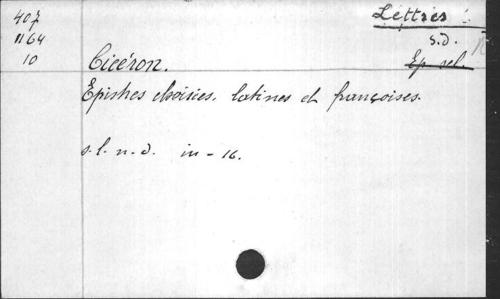 407
1164
10
Lettres
s.d.
Ep. sel.
Cicéron.
Epistres choisies, latines et françoises.
s.l.n.d. in-16.